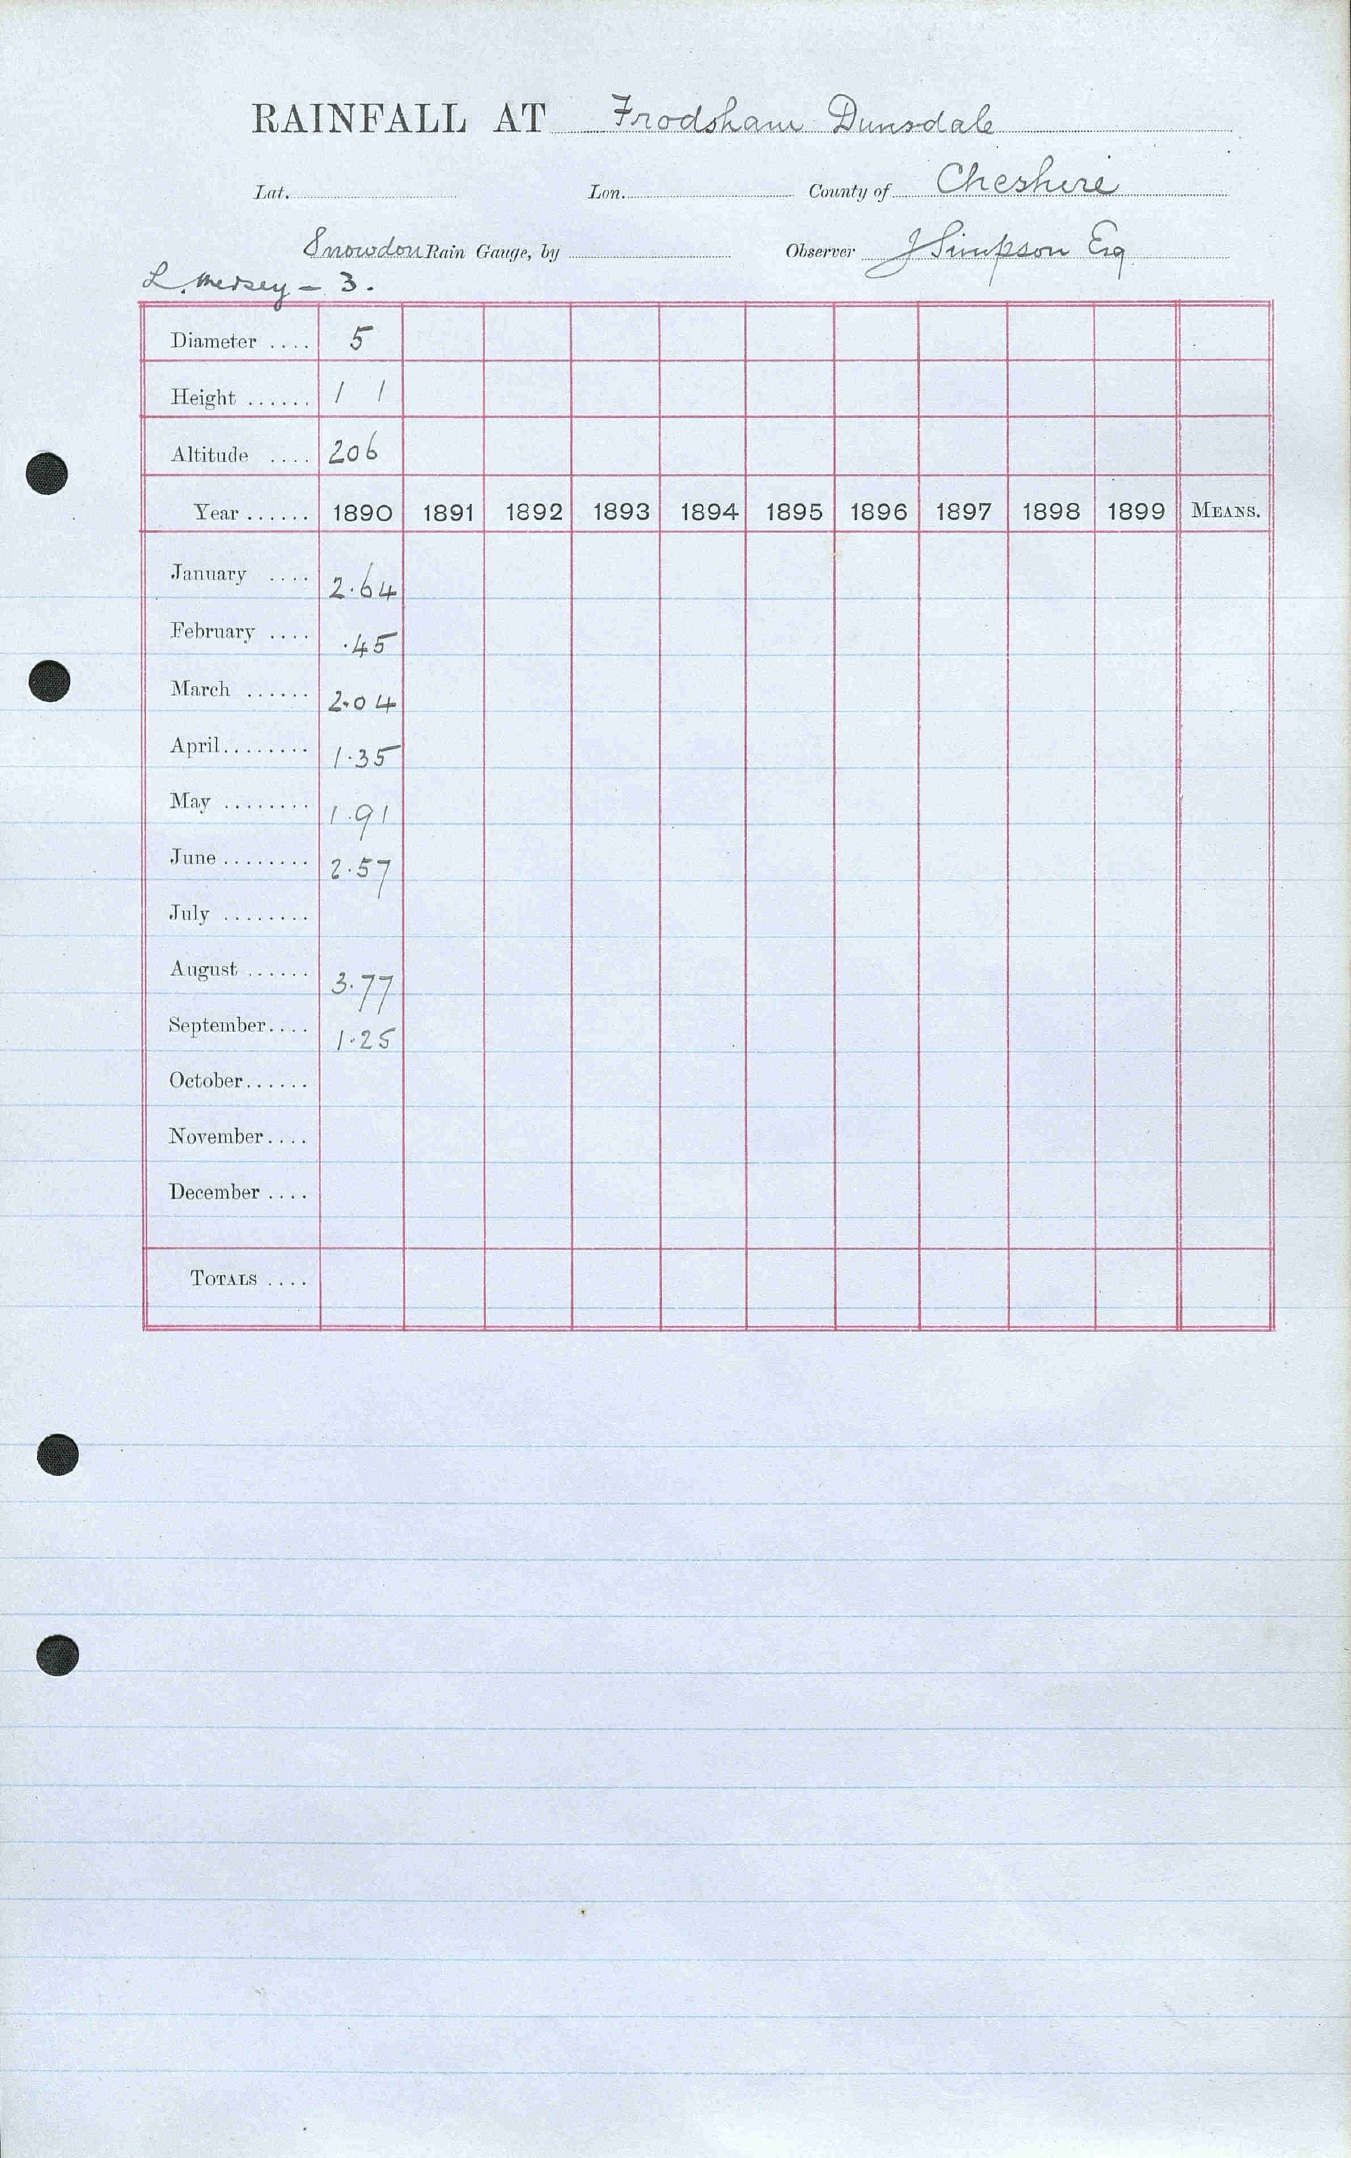 RAINFALL AT Frodsham Dunsdale
Lat. Lon. County of Cheshire
Snowdon Rain Gauge, by Observer J Simpson Esq
L. Mersey - 3.
Diameter .... 5
Height ...... 1 1
Altitude .... 206
Year ...... 1890 1891 1892 1893 1894 1895 1896 1897 1898 1899 MEANS.
January .... 2.64
February .... .45
March ...... 2.04
April........ 1.35
May ........ 1.91
June ........ 2.57
July ........
August ...... 3.77
September.... 1.25
October......
November....
December ....
TOTALS ....